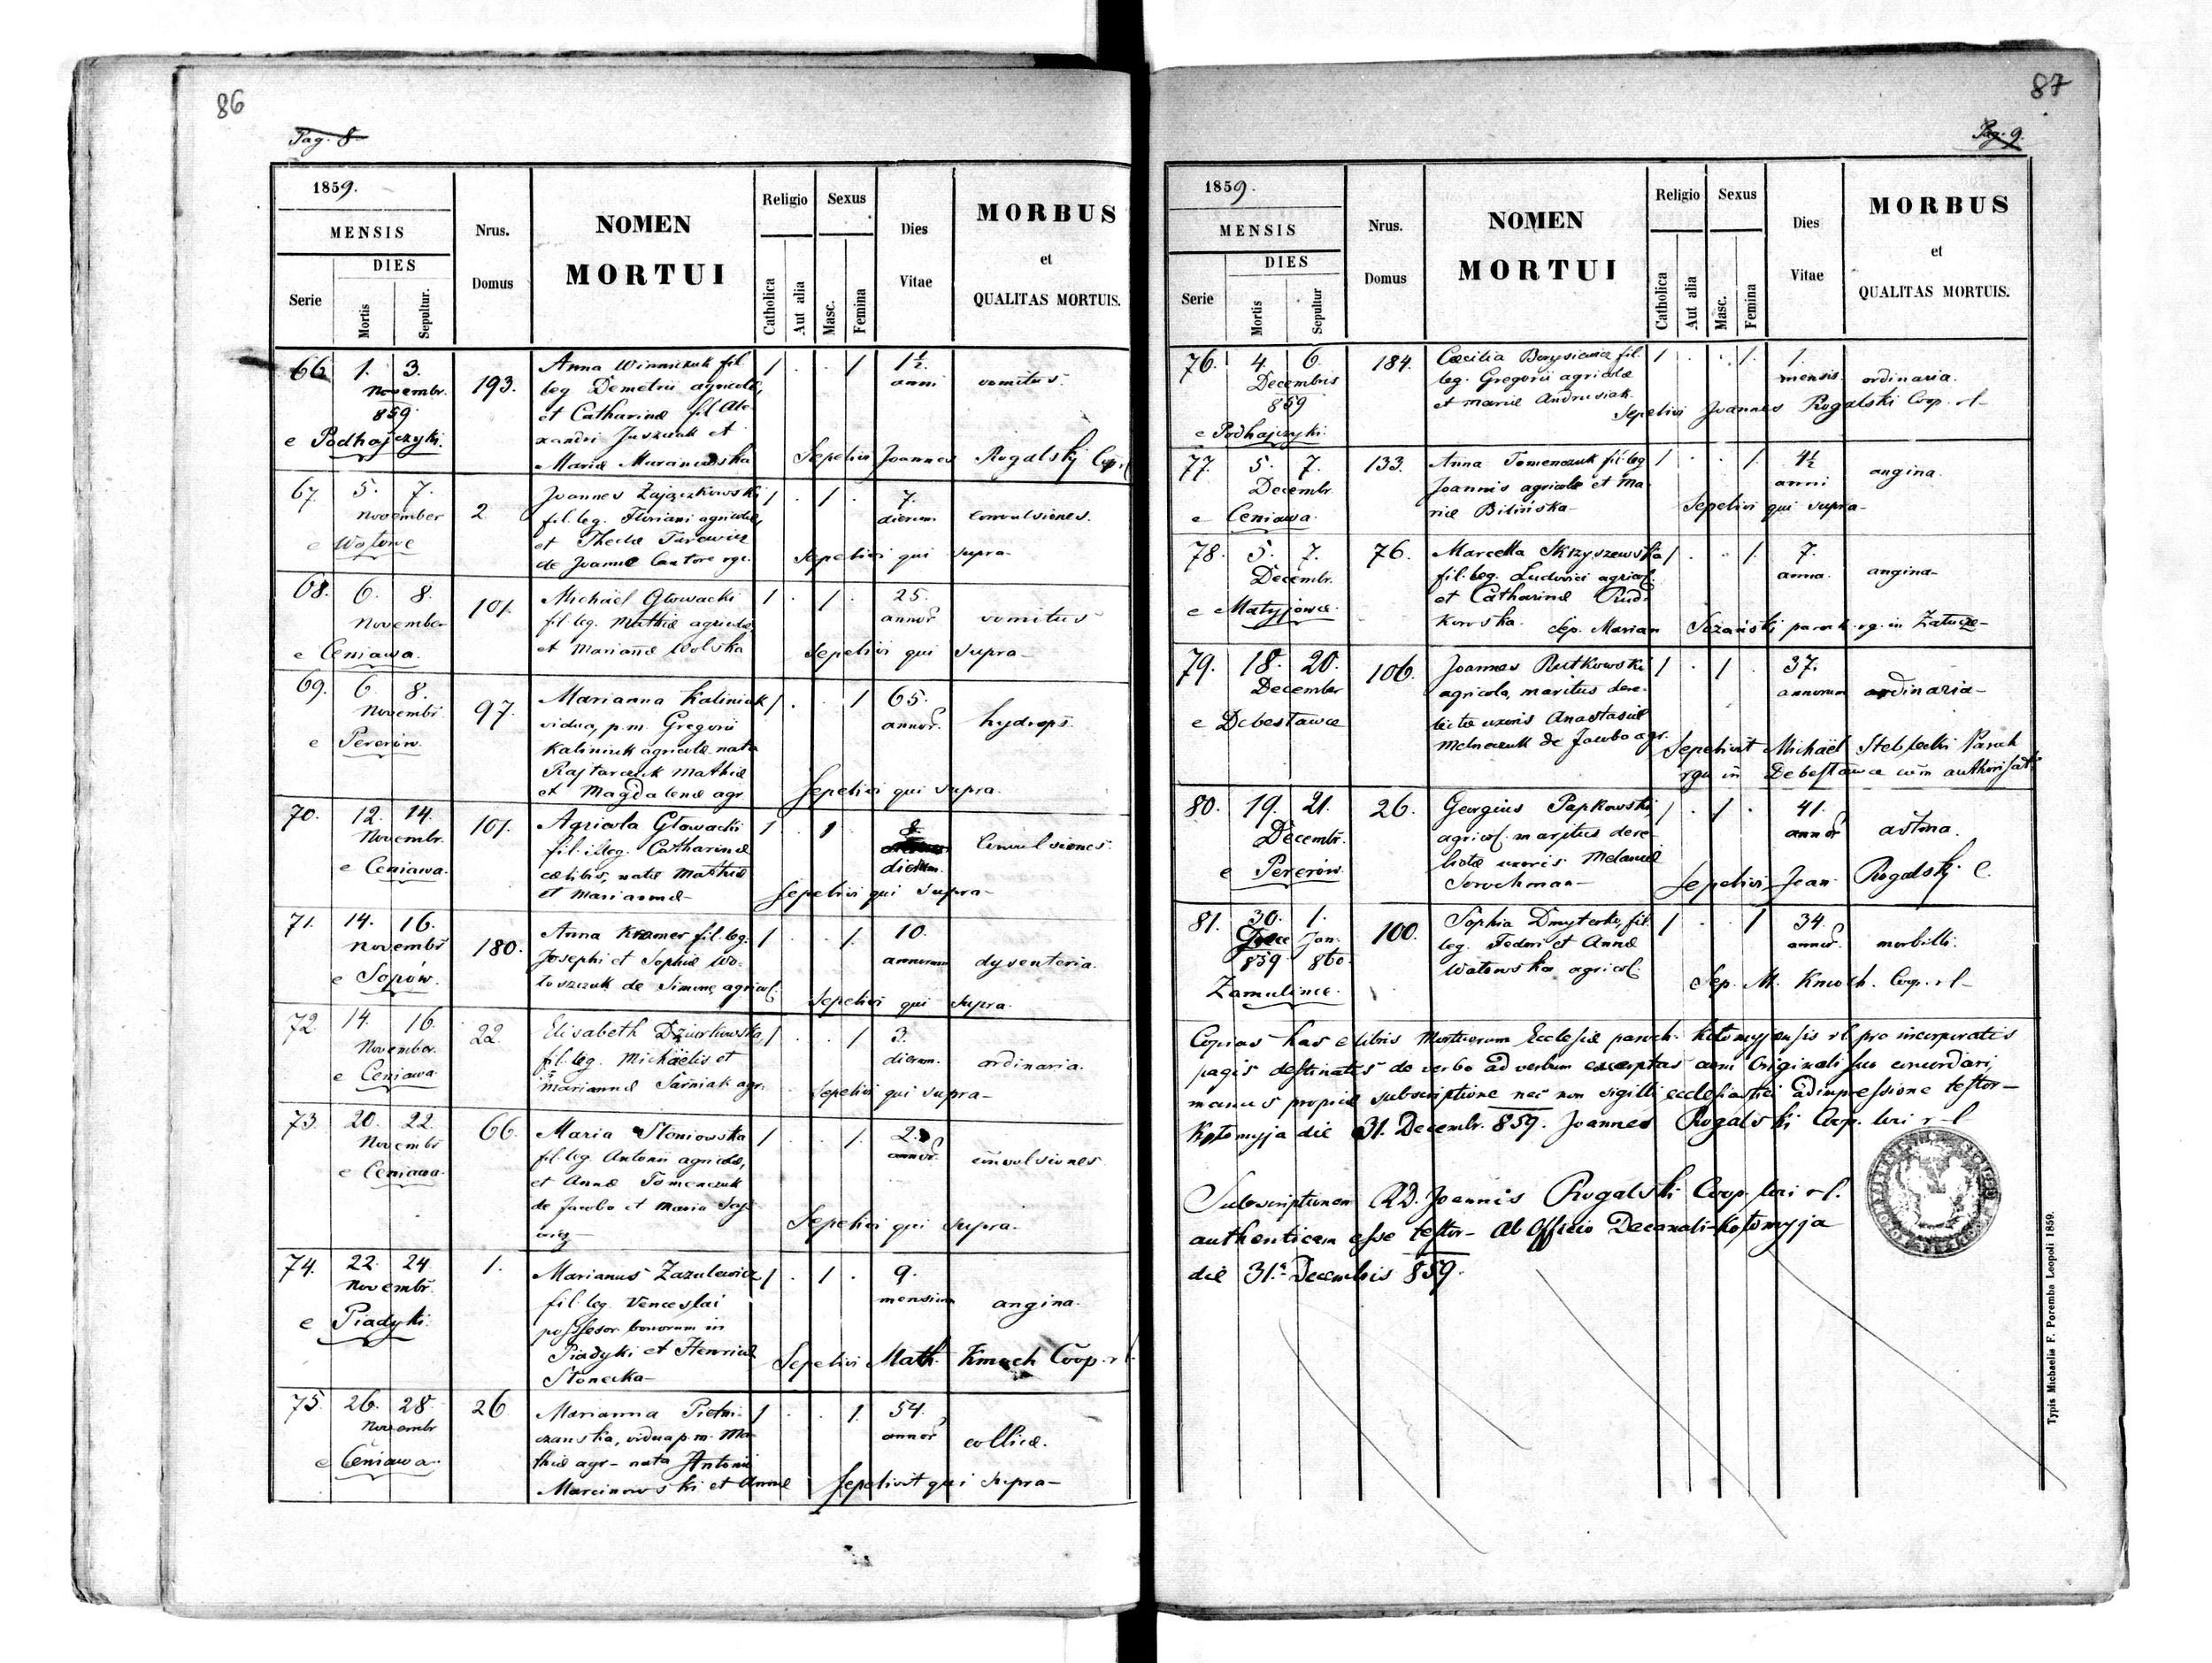 86
Pag. 8
1859.
MENSIS
DIES
Serie
Mortis
Sepultur.
Nrus.
Domus
NOMEN
MORTUI
Religio
Catholica
Aut alia
Sexus
Masc.
Femina
Dies
Vitae
MORBUS
et
QUALITAS MORTUIS.
66. 1. 3. Novembr. 859 e Podhajczyki. 193.
Anna Winniczuk fil.
leg Demetrii agricolæ,
et Catharinæ fil Ale-
xandri Juszczak et
Mariæ Muranowska
1 . . 1 1½ anni vomitus.
Sepelivi Joannes Rogalskj Coop. rl
67. 5. 7. November e Wołowe 2
Joannes Zajączkowski
fil. leg. Floriani agricolæ,
et Theclæ Turewicz
de Joanne Cantore rgr.
1 . 1 . 7. dierum convulsiones.
Sepelivi qui supra
68. 6. 8. November e Ceniawa. 101.
Michaël Głowacki
fil. leg. Mathiæ agricolæ,
et Mariannæ Wolska
1 . 1 . 25. annor vomitus
Sepelivi qui supra
69. 6. 8. Novembr e Pererów. 97.
Marianna Kaliniuk
vidua, p.m. Gregorii
Kaliniuk agricolæ nata
Rajtarczuk Mathiæ
et Magdalenæ agr.
1 . . 1 65. annor. hydrops.
Sepelivi qui supra.
70. 12. 14. Novembr. e Ceniawa. 101.
Agricola Głowacki
fil. illeg. Catharinæ
cælibis, natæ Mathiæ
et Mariannæ
1 . 1 8. dierum. Convulsiones.
Sepelivi qui supra
71. 14. 16. Novembr e Sopów. 180.
Anna Kramer fil. leg.
Josephi et Sophiæ Wo-
łoszczuk de Simone agricol.
1 . . 1. 10. annorum dysenteria.
Sepelivi qui supra.
72. 14. 16. November. e Ceniawa. 22.
Elisabeth Dziurkowska,
fil. leg. Michaëlis et
Mariannæ Sarniak agr.
1 . . 1 3. dierum. ordinaria.
Sepelivi qui supra
73. 20. 22. Novembr e Ceniawa. 66.
Maria Słoniowska
fil. leg. Antonii agricolæ,
et Annæ Tomenczuk
de Jacobo et Maria
1 . . 1. 2. annor. convulsiones
Sepelivi qui supra.
74. 22. 24. Novembr e Piadyki. 1.
Marianus Zazulewicz
fil. leg. Venceslai
possessor bonorum in
Piadyki et Henricæ
Słonecka
1 . 1 . 9. mensium angina.
Sepelivi Math. Kmoch Coop. rl
75. 26. 28. Novembr e Ceniawa. 26
Marianna Pietni-
czanska, vidua p.m. Ma-
thiæ agr. nata Antonii
Marcinowski et Annæ
1 . . 1. 54. annor collica.
Sepelivit qui supra
87
Pag. 9.
1859.
MENSIS
DIES
Serie
Mortis
Sepultur
Nrus.
Domus
NOMEN
MORTUI
Religio
Catholica
Aut alia
Sexus
Masc.
Femina
Dies
Vitae
MORBUS
et
QUALITAS MORTUIS.
76. 4. 6. Decembris 859 e Podhajczyki. 184.
Cæcilia Borysiewicz fil.
leg. Gregorii agricolæ
et Mariæ Andrusiak.
1 . . 1. 1. mensis. ordinaria.
Sepelivi Joannes Rogalski Coop. rl
77. 5. 7. Decembr e Ceniawa. 133.
Anna Tomenczuk fil. leg
Joannis agricolæ et Ma-
riæ Bilińska
1 . . 1. 4½ anni angina.
Sepelivi qui supra
78. 5. 7. Decembr. e Matyjowce. 76.
Marcella Skrzyszewska
fil. leg. Ludovici agricol.
et Catharinæ Rud-
kowska.
1 . . 1. 7. anna. angina
Sep. Marian paroch. rg. in Załucze
79. 18. 20. December e Debesławce 106.
Joannes Rutkowski
agricola, maritus dere-
lictæ uxoris Anastasiæ
Melneczuk de Jacobo agr.
1 . 1 . 37. annorum ordinaria
Sepelivit Michaël Steblecki Paroch
rgr in Debesławce cum authorisat
80. 19. 21. Decembr. e Pererów. 26.
Georgius Papkowski,
agricol. maritus dere-
lictæ uxoris Melaniæ
Sorochman
1 . 1 . 41. annor astma.
Sepelivi Joan Rogalskj C.
81. 30. 859 1. Jan. 860. Zamulince. 100.
Sophia Dmyterko, fil.
leg. Fedori et Annæ
Watowska agricol.
1 . . 1 34. annor. morbilli.
Sep. M. Kmoch. Coop. rl
Copias has e libris Mortuorum Ecclesiæ paroch. Kołomyjensis rl. pro incorporatis
pagis destinatis de verbo ad verbum excerptas cum Originali suo concordari,
manus propriæ subscriptione nec non sigilli ecclesiastici adimpressione testor
Kołomyja die 31. Decembr. 859. Joannes Rogalski Coop. loci r l
Subscriptionem RD. Joannis Rogalski Coop. loci rl.
authenticam esse testor Ab Officio Decanali Kołomyja
die 31. Decembris 859.
Typis Michaelis F. Poremba Leopoli 1859.